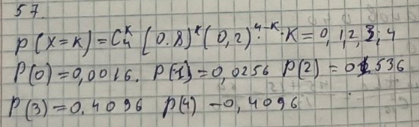 57.
p(X=K)=C₄ᴷ (0.8)ᴷ(0,2)⁴⁻ᴷ. K=0,1,2,3,4
P(0)=0,0016. P(1)=0,0256 P(2)=01536
P(3)=0,4096 p(4)-0,4096